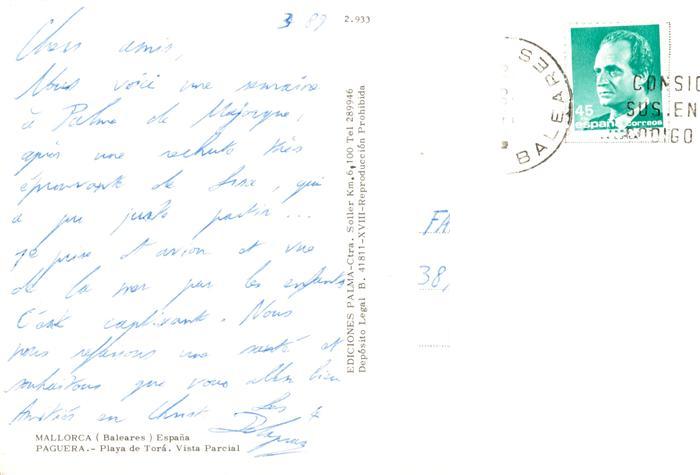 3 87
2.933
Chers amis,
Nous voici une semaine
à Palma de Majorque,
après une rechute très
éprouvante de Line, qui
a pu juste partir ...
1e prise d'avion et vue
de la mer par les enfants
C'était captivant. Nous
nous refaisons une santé et
souhaitons que vous allez bien
Amitiés en Christ Les
MALLORCA ( Baleares ) España
PAGUERA.- Playa de Torá. Vista Parcial
EDICIONES PALMA-Ctra. Soller Km.6,100 Tel 289946
Depósito Legal B. 41811-XVIII-Reproducción Prohibida
BALEARES
45
españa correos
CONSIG
SUS.EN
CODIGO
FA
38,